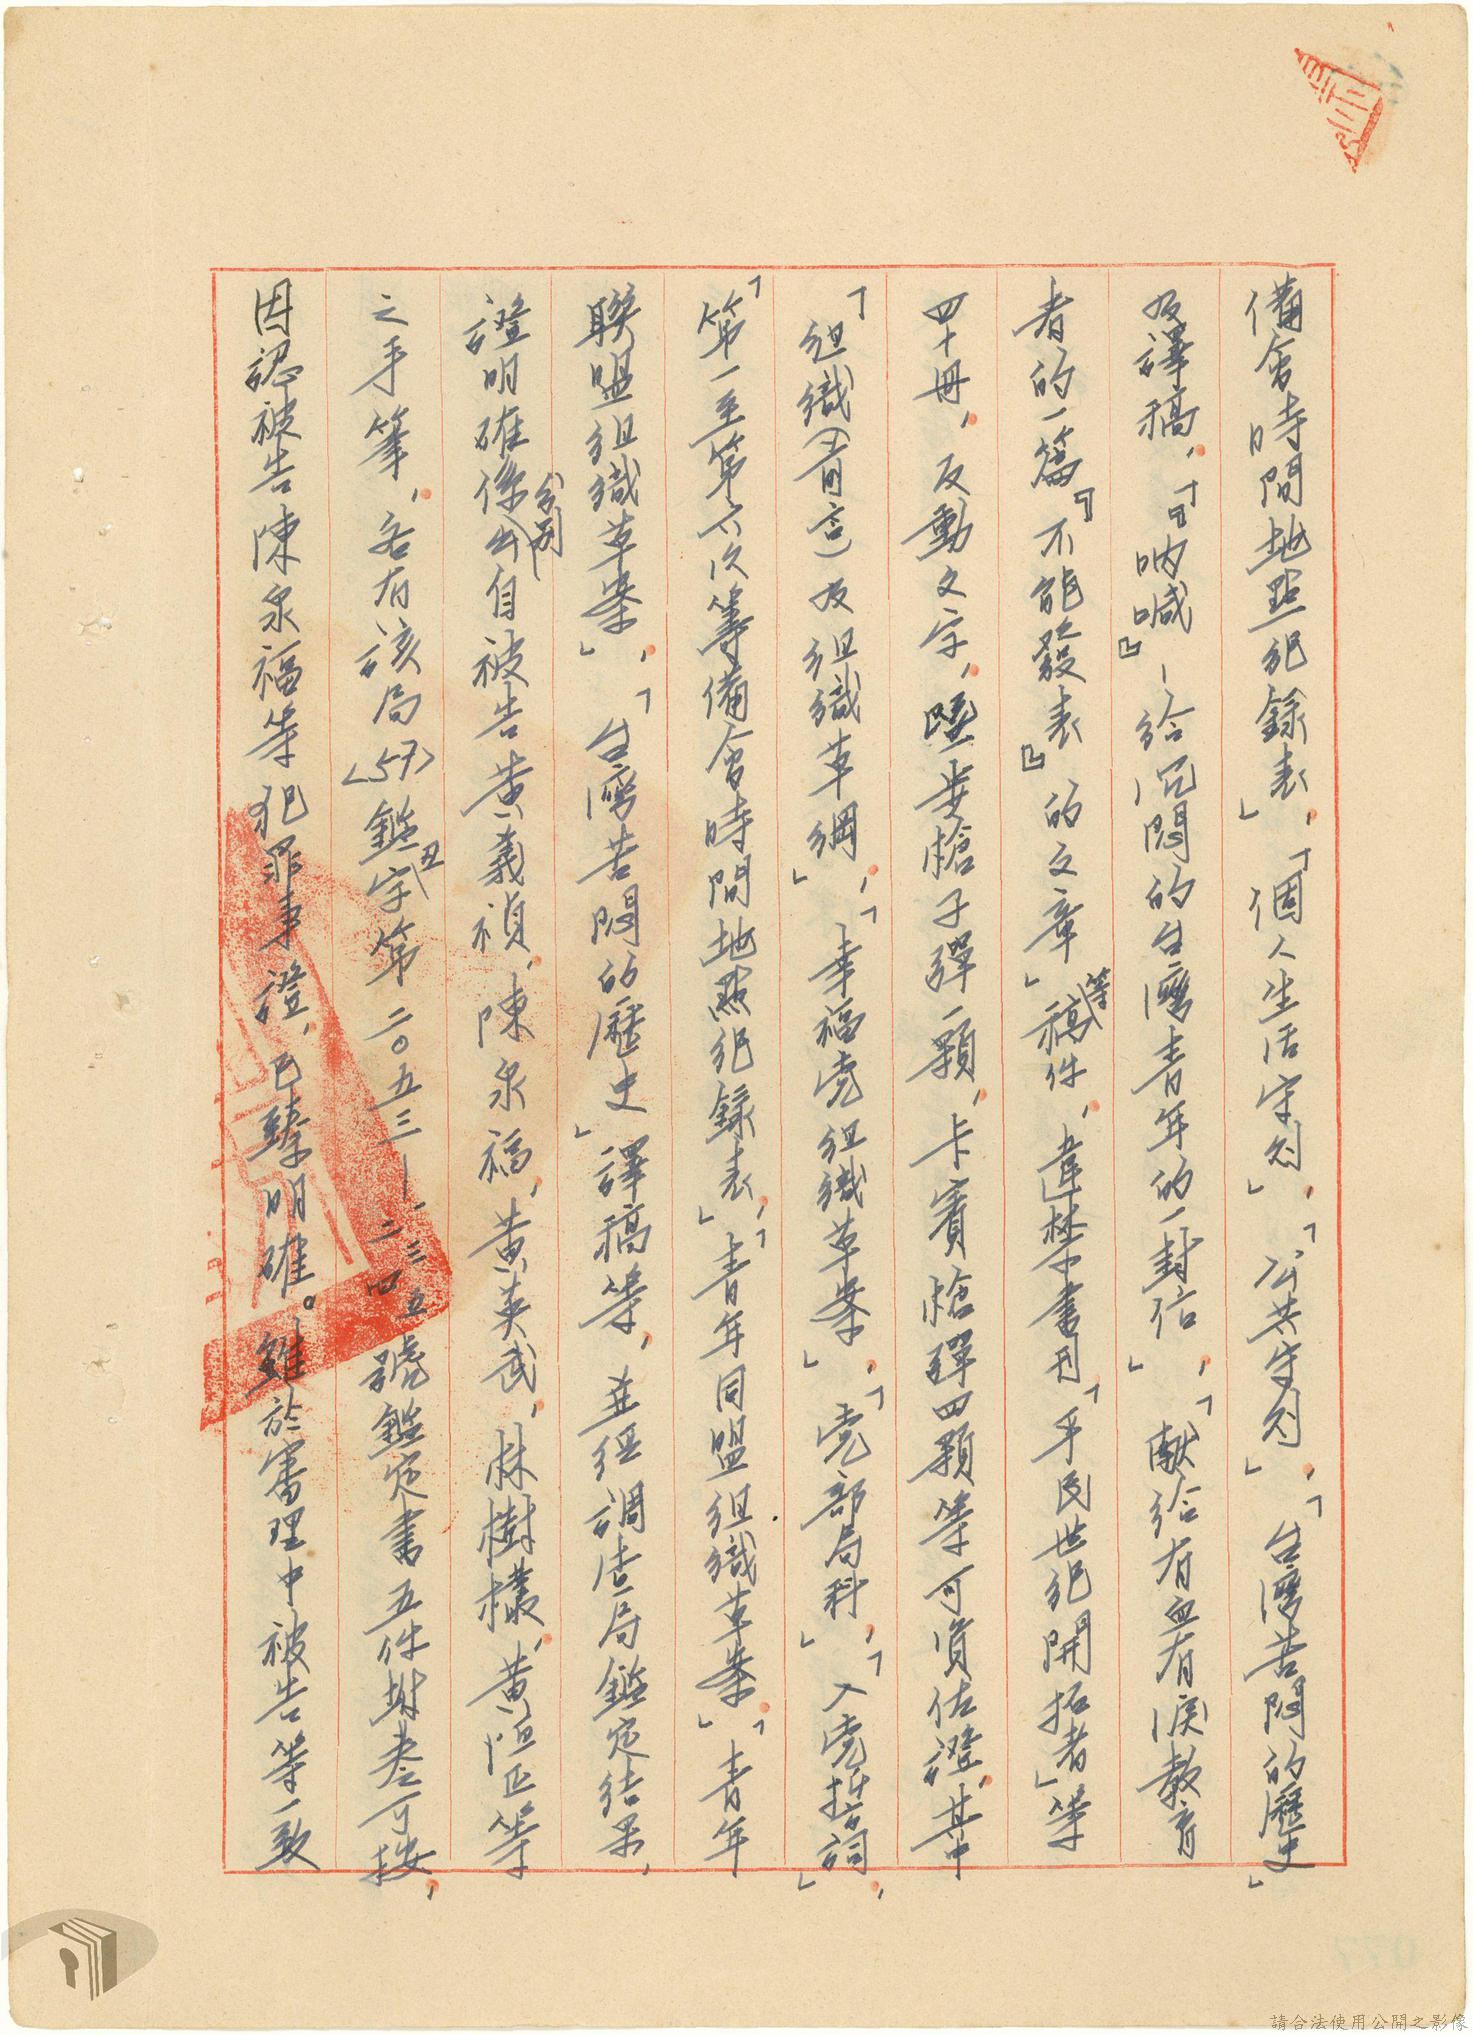 備會時間地點紀錄表」，「個人生活守則」，「公共守則」，「台灣苦悶的歷史」
及譯稿，「『吶喊』－給沉悶的台灣青年的一封信」，「獻給有血有淚教育
者的一篇『不能發表』的文章」等稿件，違禁書刊「平民世紀開拓者」等
四十冊，反動文字，曁步槍子彈一顆，卡賓槍彈四顆等可資佐證，其中
「組織(首言)及組織草綱」，「幸福党組織草案」，「党部局科」，「入党誓詞」，
「第一至第六次籌備會時間地點紀錄表」，「青年同盟組織草案」，「青年
聯盟組織草案」，「台灣苦悶的歷史」譯稿等，並經調查局鑑定結果，
證明確係分別出自被告黃義禎，陳泉福，黃英武，林樹欉，黃阻正等
之手筆，各有該局<57>鑑丑字第二〇五三一、二、三、四、五號鑑定書五件坿卷可按，
因認被告陳泉福等犯罪事證，已臻明確。雖於審理中被告等一致
請合法使用公開之影像